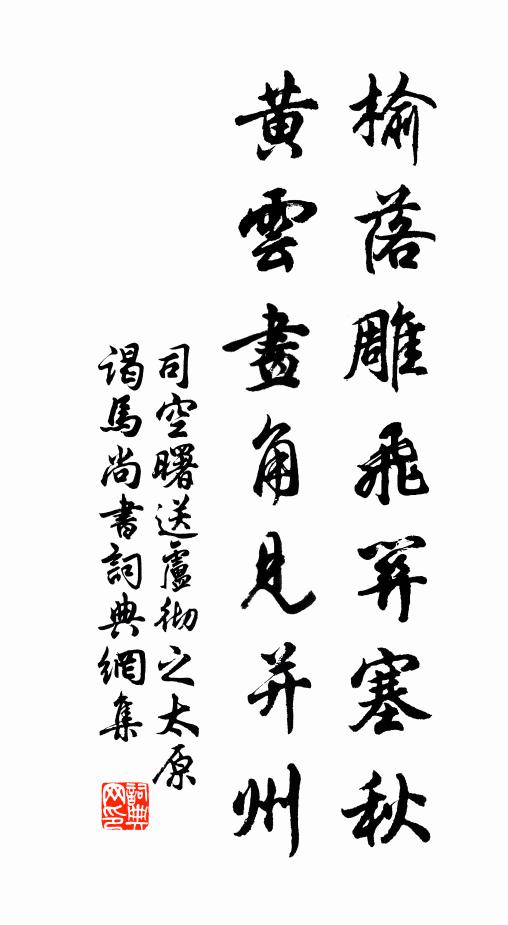 榆落雕飛關塞秋
黃雲畫角見并州
司空曙送盧彻之太原
謁馬尚書詞典網集
詞典網印